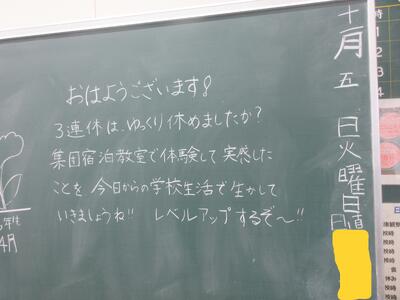 十一月五日火曜日
日直
おはようございます!
3連休は、ゆっくり休めましたか?
集団宿泊教室で体験して実感した
ことを今日からの学校生活で生かして
いきましょうね!! レベルアップするぞ〜!!
4月
時
1
2
3
4
校時
校時
校時
校時